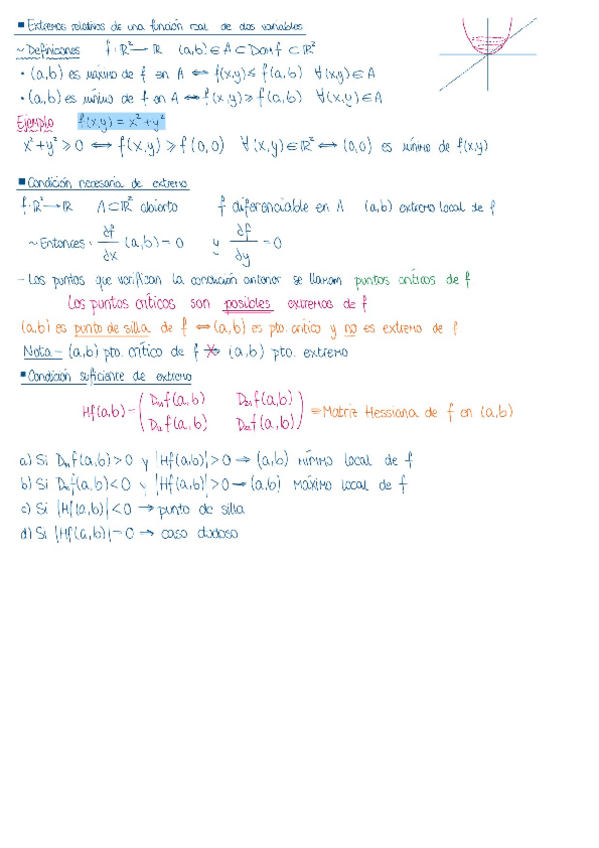 ▪ Extremos relativos de una función real de dos variables
~ Definiciones f: ℝ² → ℝ (a,b) ∈ A ⊂ Dom f ⊂ ℝ²
• (a,b) es máximo de f en A ⟺ f(x,y) ≤ f(a,b) ∀(x,y) ∈ A
• (a,b) es mínimo de f en A ⟺ f(x,y) ≥ f(a,b) ∀(x,y) ∈ A
Ejemplo f(x,y) = x² + y²
x² + y² ≥ 0 ⟺ f(x,y) ≥ f(0,0) ∀(x,y) ∈ ℝ² ⟺ (0,0) es mínimo de f(x,y)
▪ Condición necesaria de extremo
f: ℝ² → ℝ A ⊂ ℝ² abierto f diferenciable en A (a,b) extremo local de f
~ Entonces: ∂f/∂x (a,b) = 0 y ∂f/∂y = 0
- Los puntos que verifican la condición anterior se llaman puntos críticos de f
Los puntos críticos son posibles extremos de f
(a,b) es punto de silla de f ⟺ (a,b) es pto. crítico y no es extremo de f
Nota - (a,b) pto. crítico de f ⇏ (a,b) pto. extremo
▪ Condición suficiente de extremo
Hf(a,b) = ( D₁₁f(a,b) D₂₁f(a,b)
D₁₂f(a,b) D₂₂f(a,b) ) = Matriz Hessiana de f en (a,b)
a) Si D₁₁f(a,b) > 0 y |Hf(a,b)| > 0 → (a,b) mínimo local de f
b) Si f(a,b) < 0 y |Hf(a,b)| > 0 → (a,b) máximo local de f
c) Si |Hf(a,b)| < 0 → punto de silla
d) Si |Hf(a,b)| = 0 → caso dudoso